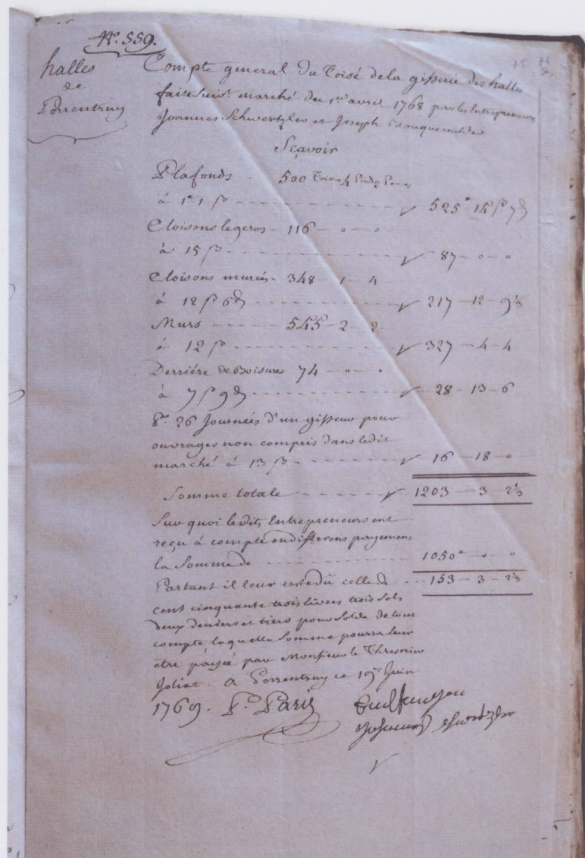 N.° 559.
halles
de
Porrentruy
Compte general du Toisé de la gisserie des halles
faite suiv.t marché du 1.er avril 1768 par les Entrepreneurs
Joannes Schwertzler et Joseph
Sçavoir
Plafonds - 500 Toises 4 Pieds
à 1.# 1 ß - - - 525.# 15 ß 7 ₰
Cloisons legeres - 116 - " - "
à 15 ß - - - 87 - " - "
Cloisons murées - 348 - 1 - 4
à 12 ß 6 ₰ - - - 217 - 12 - 9⅓
Murs - - - 545 - 2 - 2
à 12 ß - - - 327 - 4 - 4
Derriére de Boisures 74 - " - "
à 7 ß 9 ₰ - - - 28 - 13 - 6
P.r 26 Journées d'un gisseur pour
ouvrages non compris dans ledit
marché à 13 ß - - - 16 - 18 - "
Somme totale - - - 1203 - 3 - 2⅓
Sur quoi lesdits Entrepreneurs ont
reçu à compte en differens payemens
la Somme de - - - 1050.# - " - "
Partant il leur est dû celle de - - 153 - 3 - 2⅓
cent cinquante trois livres trois sols
deux deniers et tiers pour Solde de tout
compte laquelle Somme pourra leur
etre payée par Monsieur le Thresorier
Joliat. a Porrentruy ce 19.e Juin
1769. P. Paris
Schwertzler